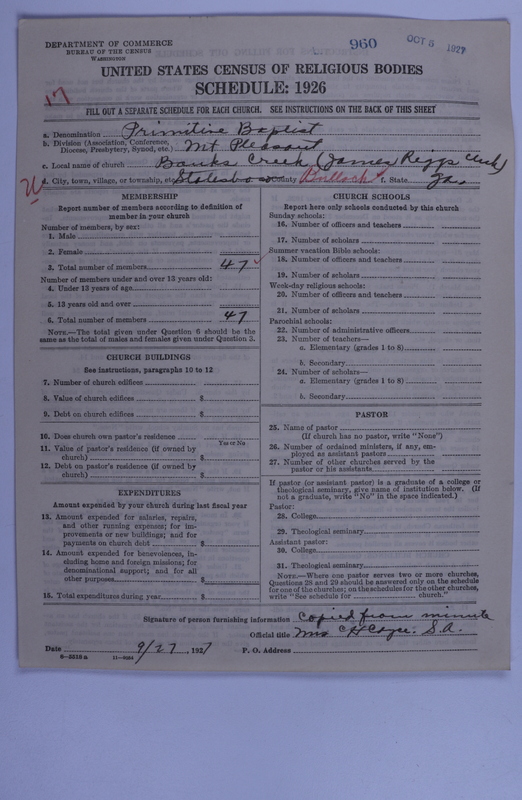 DEPARTMENT OF COMMERCE
BUREAU OF THE CENSUS
WASHINGTON
960
OCT 5 1927
UNITED STATES CENSUS OF RELIGIOUS BODIES
SCHEDULE: 1926
17
FILL OUT A SEPARATE SCHEDULE FOR EACH CHURCH. SEE INSTRUCTIONS ON THE BACK OF THIS SHEET
a. Denomination Primitive Baptist
b. Division (Association, Conference, Diocese, Presbytery, Synod, etc.) Mt Pleasant
c. Local name of church Banks Creek (James Riggs Clerk)
d. City, town, village, or township, etc. Statesboro County Bulloch f. State Ga.
MEMBERSHIP
Report number of members according to definition of
member in your church
Number of members, by sex:
1. Male
2. Female
3. Total number of members 47
Number of members under and over 13 years old:
4. Under 13 years of age
5. 13 years old and over
6. Total number of members 47
NOTE.—The total given under Question 6 should be the
same as the total of males and females given under Question 3.
CHURCH BUILDINGS
See instructions, paragraphs 10 to 12
7. Number of church edifices
8. Value of church edifices $
9. Debt on church edifices $
10. Does church own pastor's residence
Yes or No
11. Value of pastor's residence (if owned by
church) $
12. Debt on pastor's residence (if owned by
church) $
EXPENDITURES
Amount expended by your church during last fiscal year
13. Amount expended for salaries, repairs,
and other running expenses; for im-
provements or new buildings; and for
payments on church debt $
14. Amount expended for benevolences, in-
cluding home and foreign missions; for
denominational support; and for all
other purposes $
15. Total expenditures during year $
CHURCH SCHOOLS
Report here only schools conducted by this church
Sunday schools:
16. Number of officers and teachers
17. Number of scholars
Summer vacation Bible schools:
18. Number of officers and teachers
19. Number of scholars
Week-day religious schools:
20. Number of officers and teachers
21. Number of scholars
Parochial schools:
22. Number of administrative officers
23. Number of teachers—
a. Elementary (grades 1 to 8)
b. Secondary
24. Number of scholars—
a. Elementary (grades 1 to 8)
b. Secondary
PASTOR
25. Name of pastor
(If church has no pastor, write "None")
26. Number of ordained ministers, if any, em-
ployed as assistant pastors
27. Number of other churches served by the
pastor or his assistants
If pastor (or assistant pastor) is a graduate of a college or
theological seminary, give name of institution below. (If
not a graduate, write "No" in the space indicated.)
Pastor:
28. College
29. Theological seminary
Assistant pastor:
30. College
31. Theological seminary
NOTE.—Where one pastor serves two or more churches,
Questions 28 and 29 should be answered only on the schedule
for one of the churches; on the schedules for the other churches,
write "See schedule for church."
Signature of person furnishing information Copied from minute
Official title Mrs C H Cayce. S.A.
Date 9/27, 1927 P. O. Address